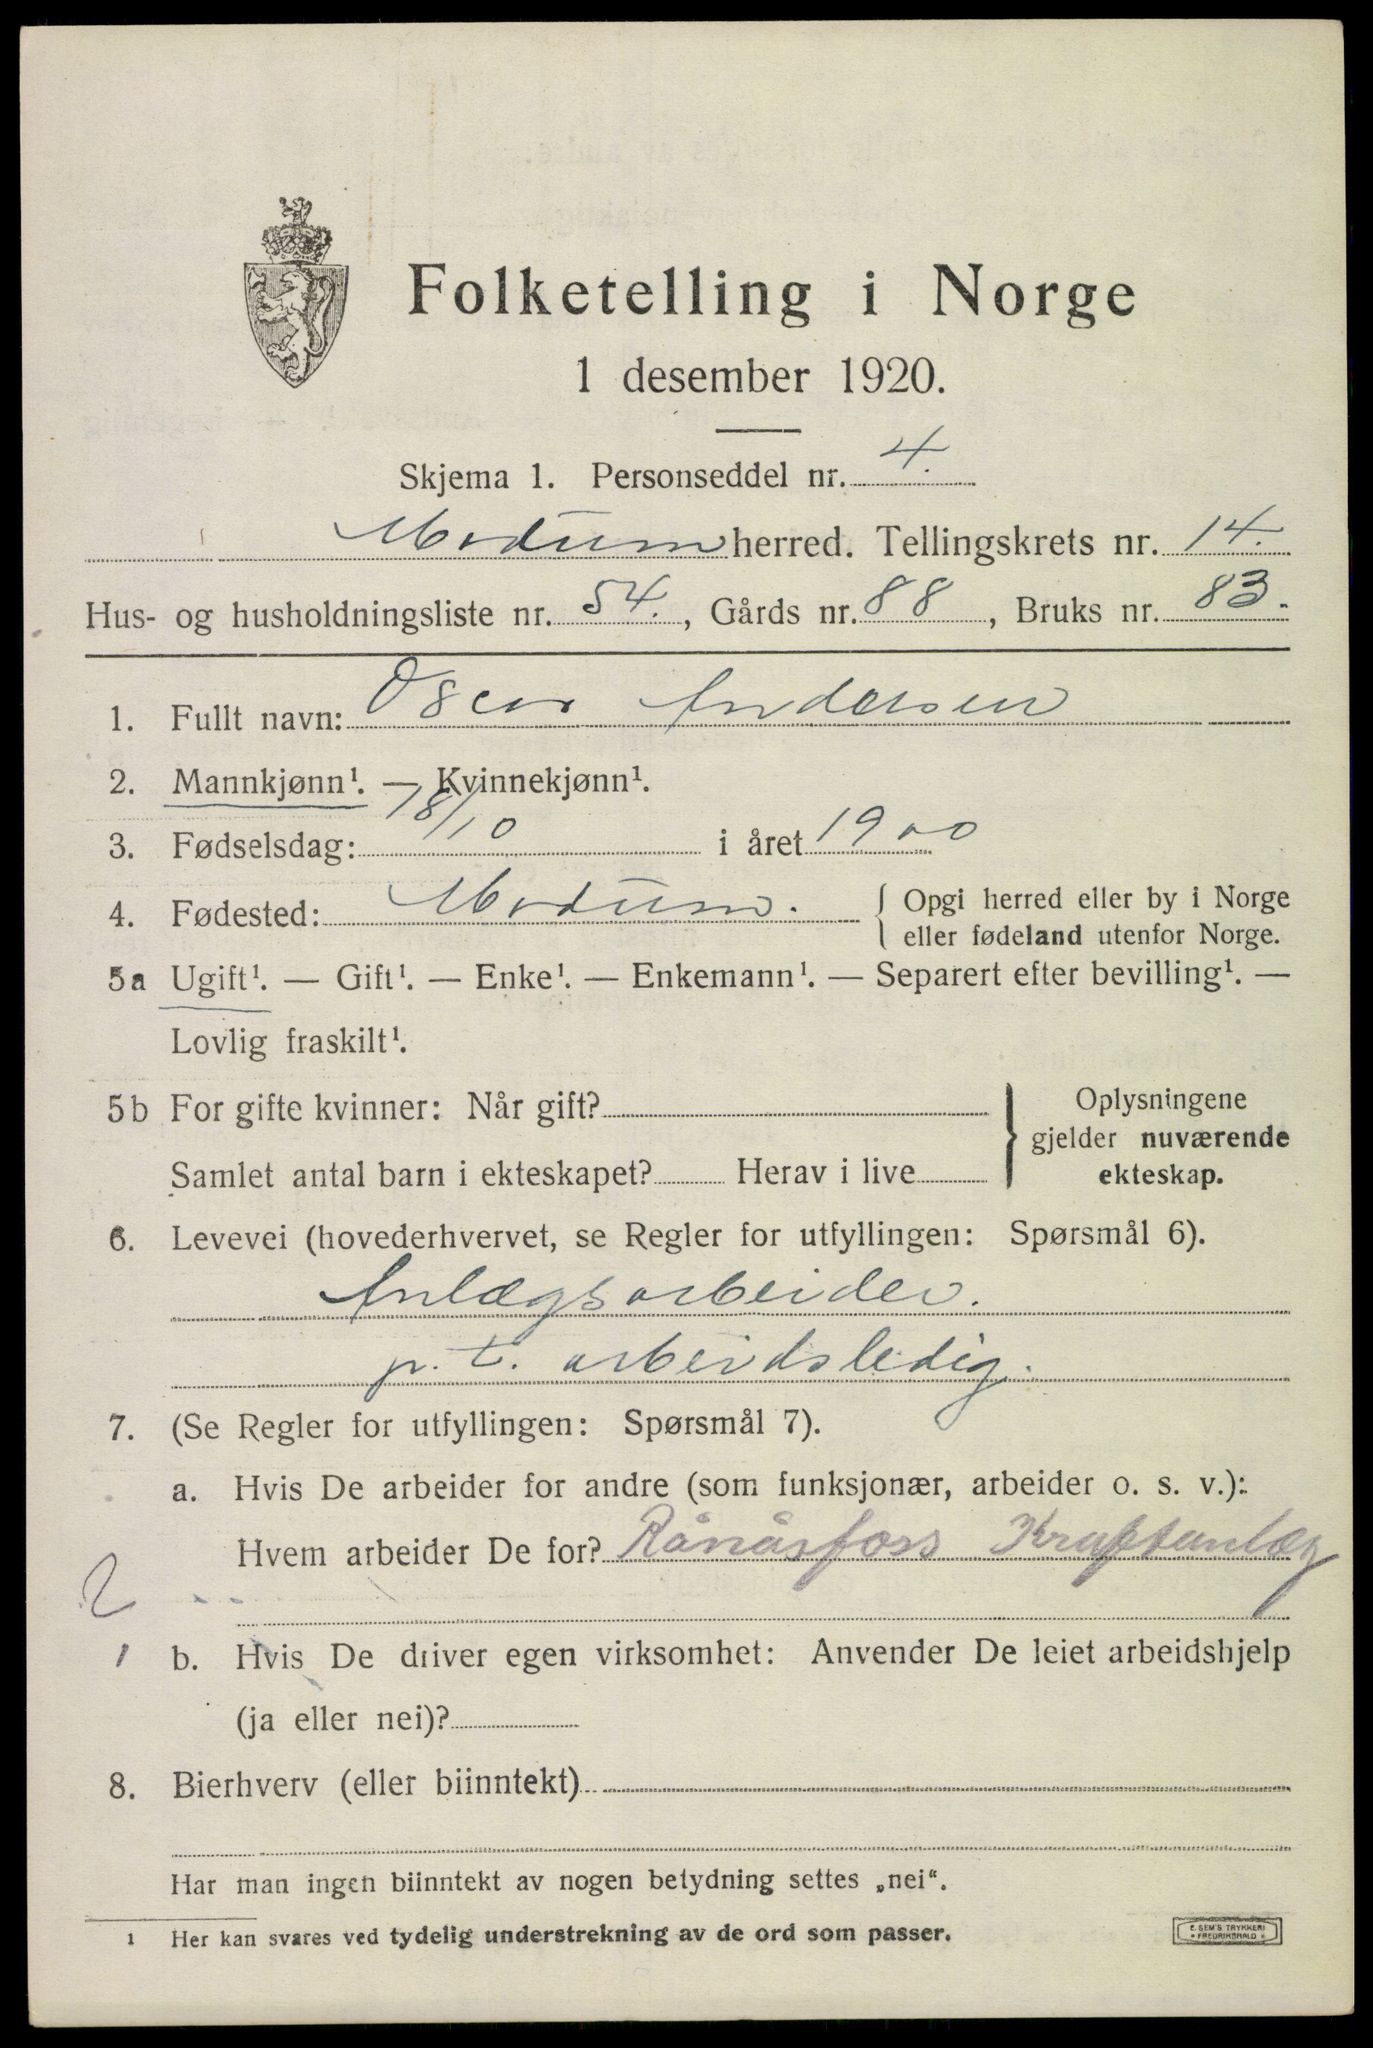 Folketelling i Norge
1 desember 1920.
Skjema 1. Personseddel nr. 4.
Modum herred. Tellingskrets nr. 14.
Hus- og husholdningsliste nr. 54., Gårds nr. 88, Bruks nr. 83.
1. Fullt navn: Oscar Andersen
2. Mannkjønn¹. — Kvinnekjønn¹.
3. Fødselsdag: 18/10 i året 1900
4. Fødested: Modum. { Opgi herred eller by i Norge
eller fødeland utenfor Norge.
5a Ugift¹. — Gift¹. — Enke¹. — Enkemann¹. — Separert efter bevilling¹. —
Lovlig fraskilt¹.
5b For gifte kvinner: Når gift? } Oplysningene
gjelder nuværende
Samlet antal barn i ekteskapet? Herav i live ekteskap.
6. Levevei (hovederhvervet, se Regler for utfyllingen: Spørsmål 6).
Anlægsarbeider.
p. t. arbeidsledig.
7. (Se Regler for utfyllingen: Spørsmål 7).
a. Hvis De arbeider for andre (som funksjonær, arbeider o. s. v.):
Hvem arbeider De for? Rånåsfoss Kraftanlæg
2
1 b. Hvis De driver egen virksomhet: Anvender De leiet arbeidshjelp
(ja eller nei)?
8. Bierhverv (eller biinntekt)
Har man ingen biinntekt av nogen betydning settes „nei“.
1 Her kan svares ved tydelig understrekning av de ord som passer.
E. SEM'S TRYKKERI
* FREDRIKSHALD *